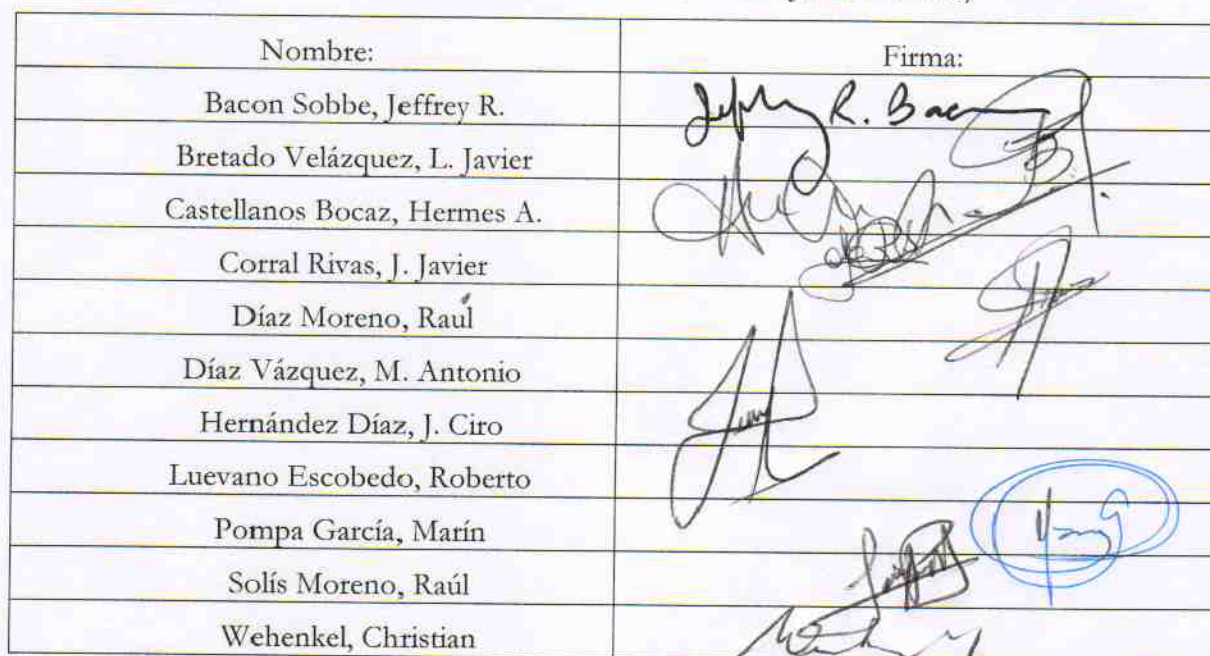 Nombre: Firma:
Bacon Sobbe, Jeffrey R. Jeffrey R. Bacon
Bretado Velázquez, L. Javier
Castellanos Bocaz, Hermes A.
Corral Rivas, J. Javier
Díaz Moreno, Raúl
Díaz Vázquez, M. Antonio
Hernández Díaz, J. Ciro
Luevano Escobedo, Roberto
Pompa García, Marín
Solís Moreno, Raúl
Wehenkel, Christian